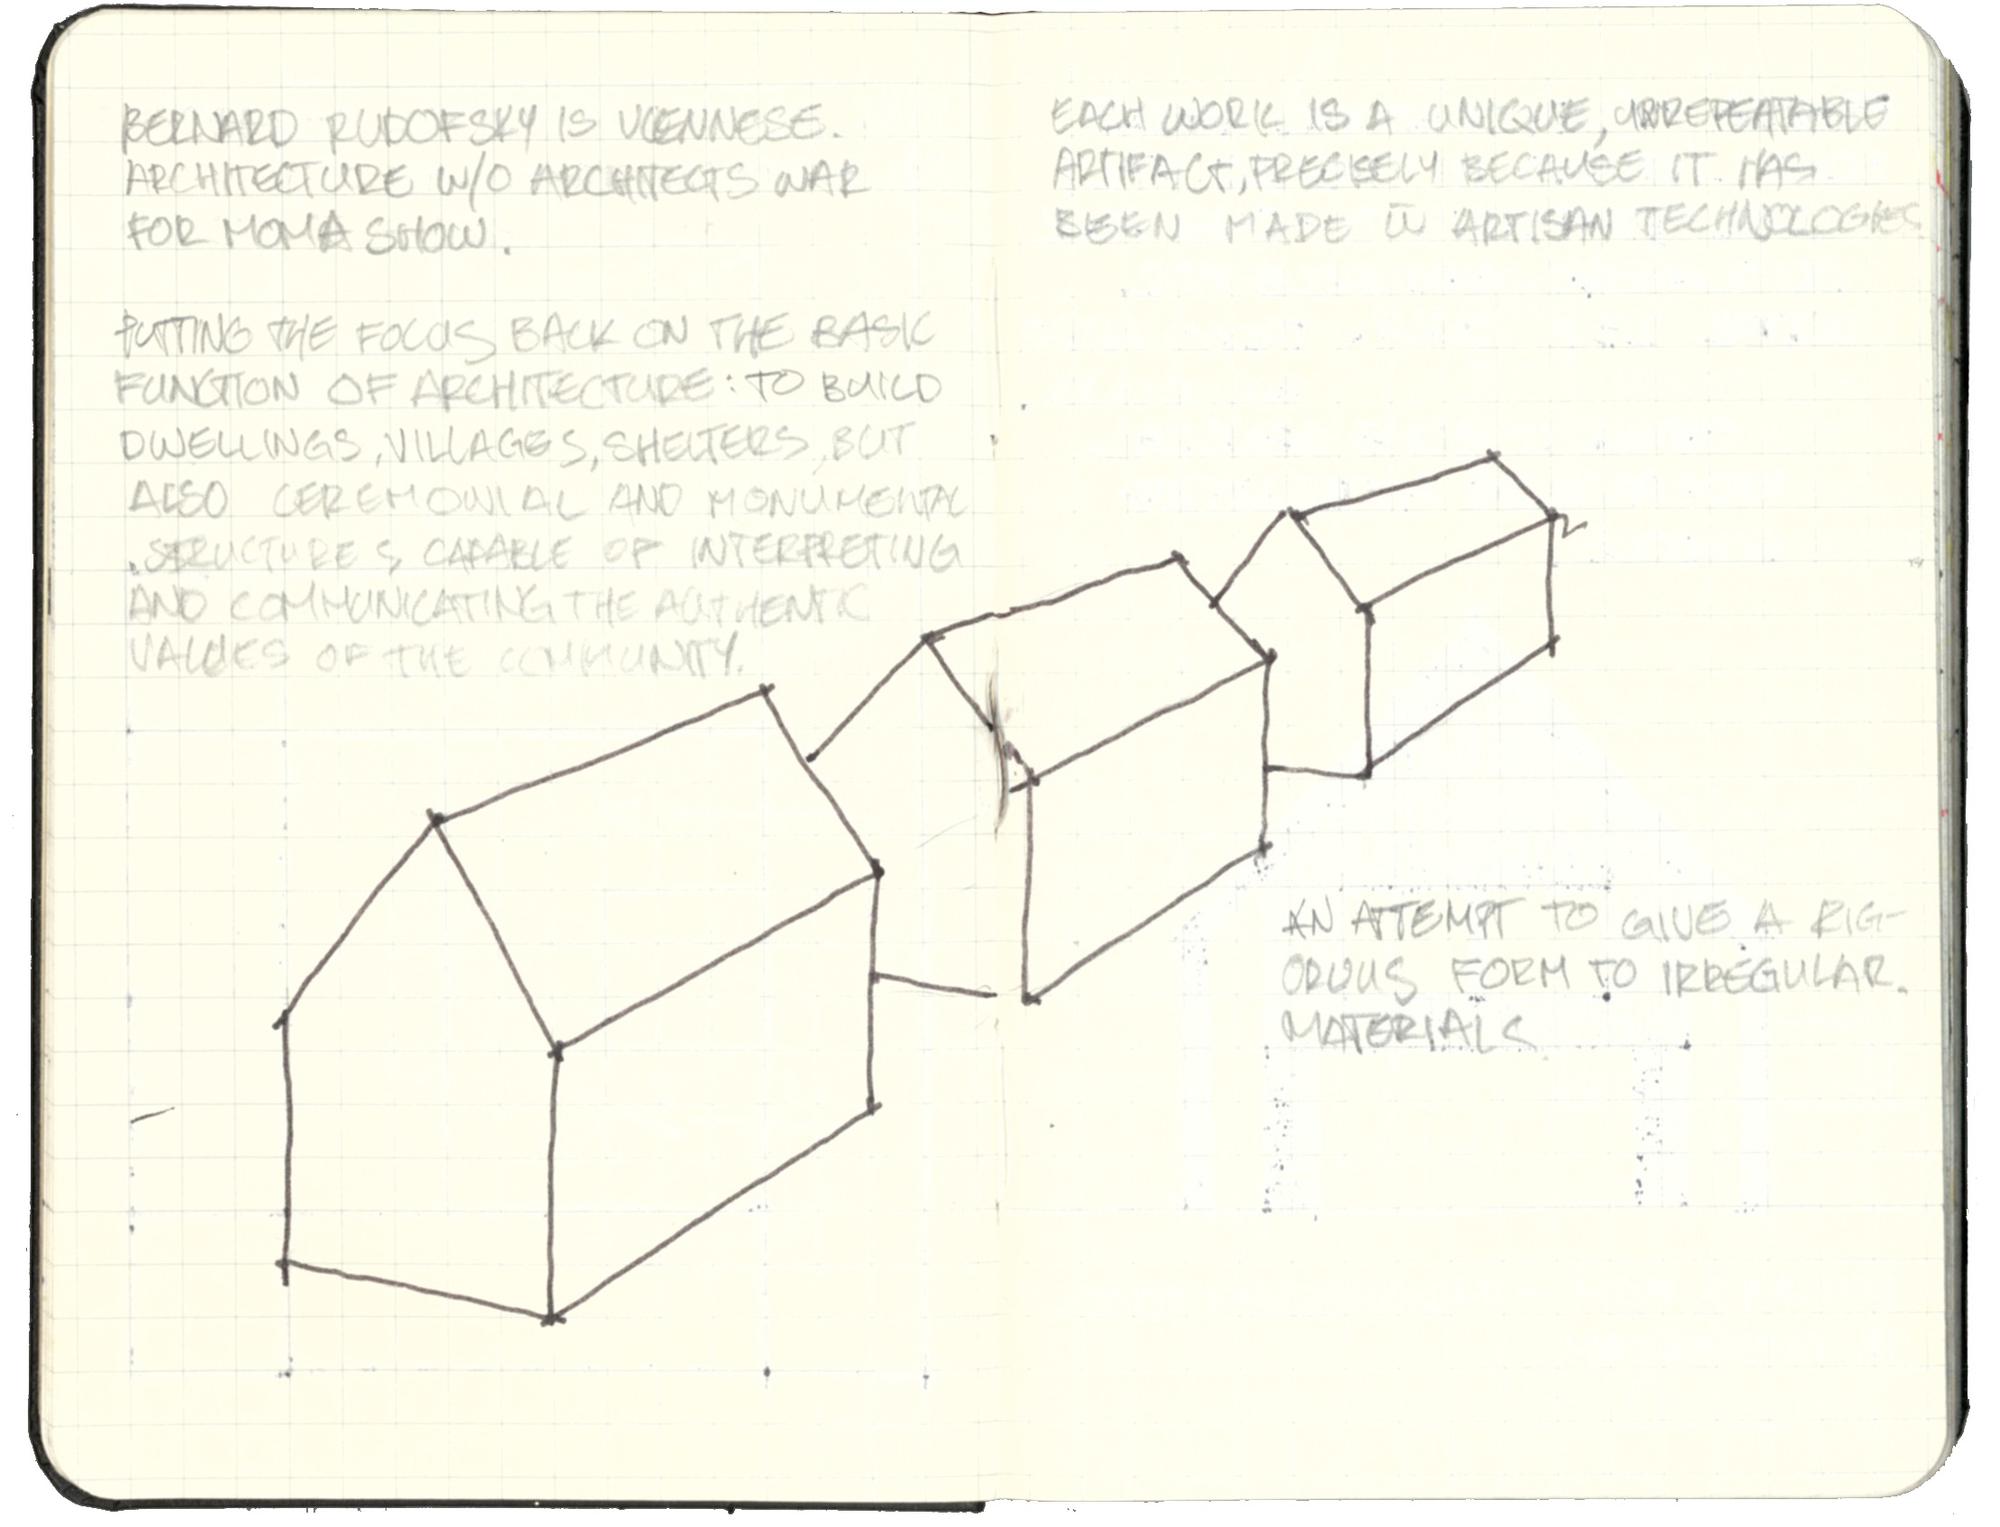 BERNARD RUDOFSKY IS VIENNESE.
ARCHITECTURE W/O ARCHITECTS WAR
FOR MOMA SHOW.
PUTTING THE FOCUS BACK ON THE BASIC
FUNCTION OF ARCHITECTURE: TO BUILD
DWELLINGS, VILLAGES, SHELTERS, BUT
ALSO CEREMONIAL AND MONUMENTAL
STRUCTURES CAPABLE OF INTERPRETING
AND COMMUNICATING THE AUTHENTIC
VALUES OF THE COMMUNITY.
EACH WORK IS A UNIQUE, UNREPEATABLE
ARTIFACT, PRECISELY BECAUSE IT HAS
BEEN MADE W ARTISAN TECHNOLOGIES
AN ATTEMPT TO GIVE A RIG-
OROUS FORM TO IRREGULAR.
MATERIALS